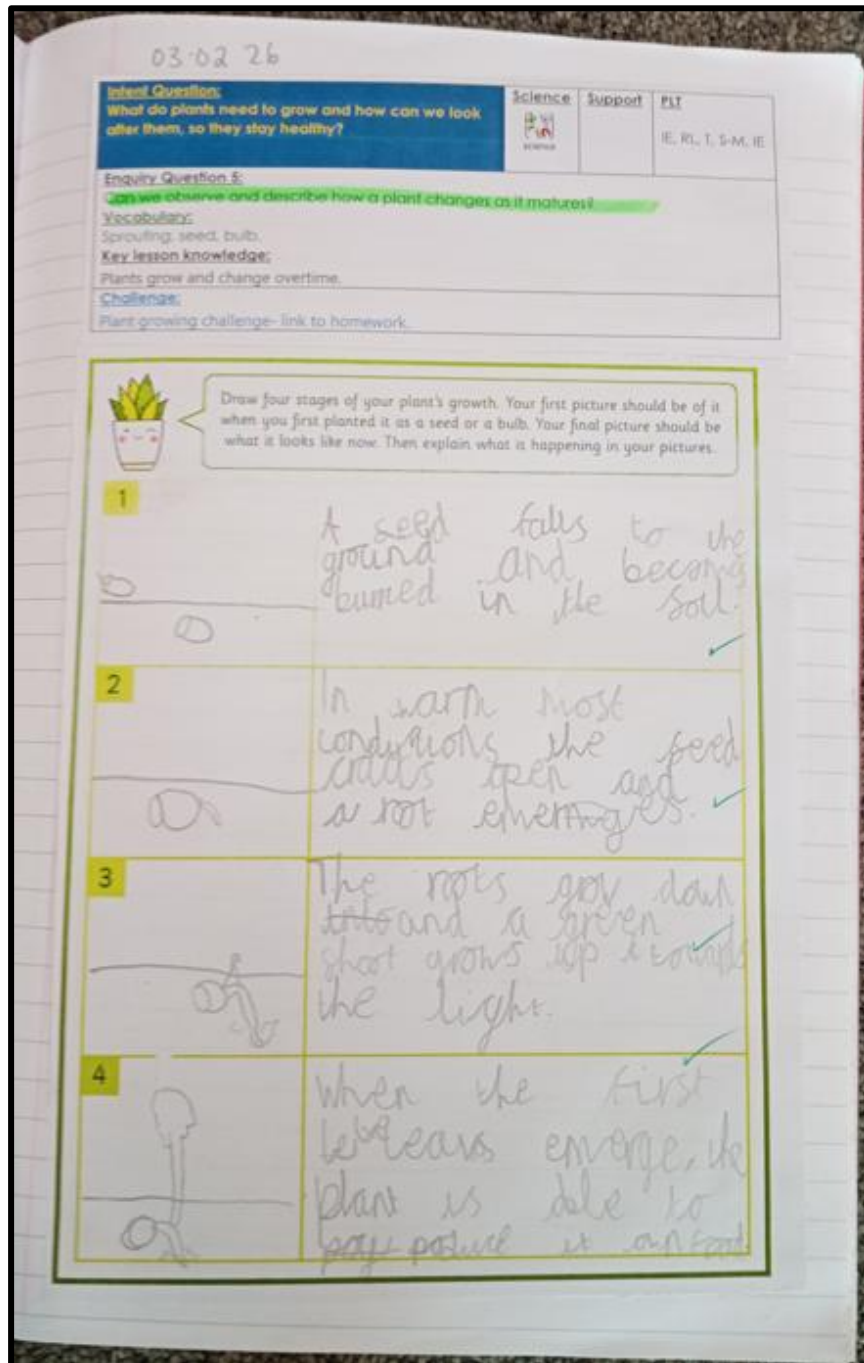 03.02 26
Intent Question: Science Support PLT
What do plants need to grow and how can we look
after them, so they stay healthy?
science
IE, RL, T, S-M, IE
Enquiry Question 5:
Can we observe and describe how a plant changes as it matures?
Vocabulary:
Sprouting, seed, bulb.
Key lesson knowledge:
Plants grow and change overtime.
Challenge:
Plant growing challenge- link to homework.
Draw four stages of your plant's growth. Your first picture should be of it
when you first planted it as a seed or a bulb. Your final picture should be
what it looks like now. Then explain what is happening in your pictures.
1
A seed falls to the
ground and becoms
burried in the soil.
2
In warm most
condytions the seed
cracks open and
a root emerges.
3
The roots grow down
into and a green
shoot grows up towards
the light.
4
When the first
leaves emerge, the
plant is able to
poduce it own food